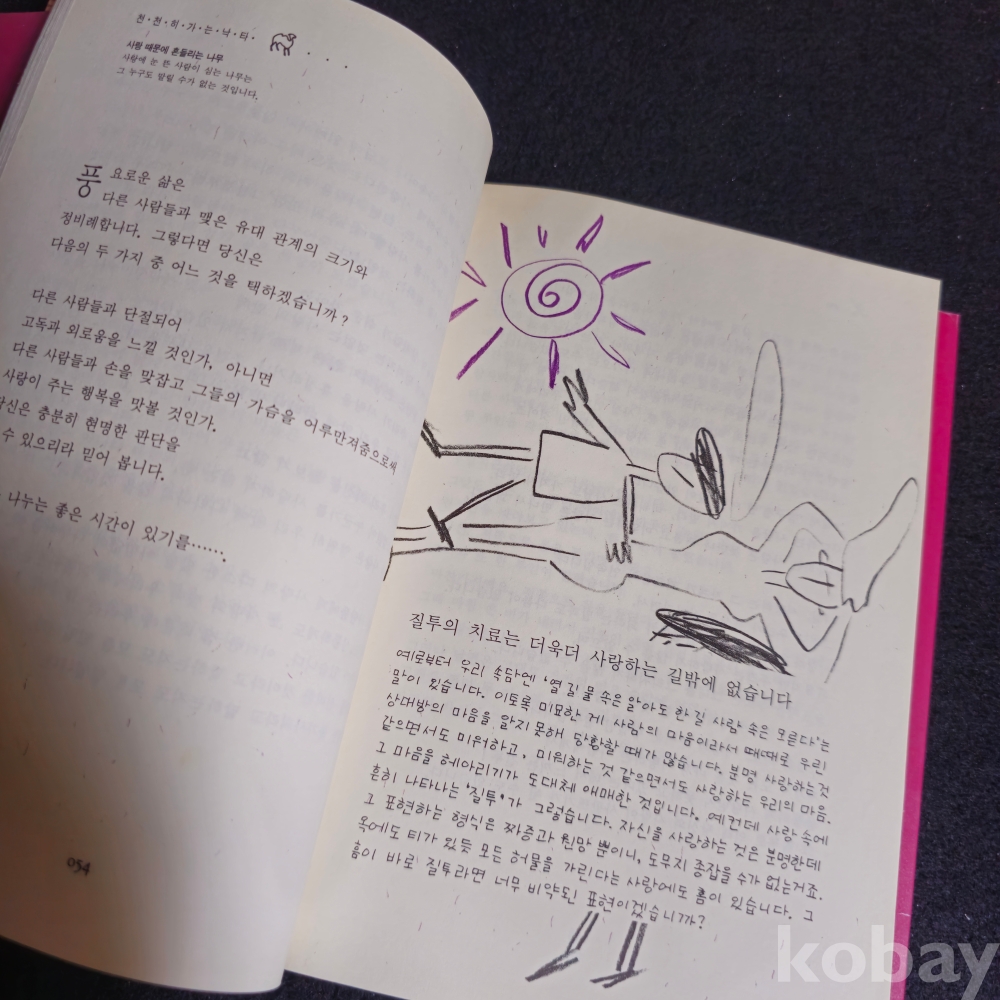 천·천·히·가·는·낙·타·
사랑 때문에 흔들리는 나무
사랑에 눈 뜬 사람이 심는 나무는
그 누구도 말릴 수가 없는 것입니다.
풍요로운 삶은
다른 사람들과 맺은 유대 관계의 크기와
정비례합니다. 그렇다면 당신은
다음의 두 가지 중 어느 것을 택하겠습니까?
다른 사람들과 단절되어
고독과 외로움을 느낄 것인가, 아니면
다른 사람들과 손을 맞잡고 그들의 가슴을 어루만져줌으로써
사랑이 주는 행복을 맛볼 것인가.
당신은 충분히 현명한 판단을
수 있으리라 믿어 봅니다.
나누는 좋은 시간이 있기를……
054
질투의 치료는 더욱더 사랑하는 길밖에 없습니다
예로부터 우리 속담엔 '열 길 물 속은 알아도 한 길 사람 속은 모른다'는
말이 있습니다. 이토록 미묘한 게 사람의 마음이라서 때때로 우린
상대방의 마음을 알지 못해 당황할 때가 많습니다. 분명 사랑하는것
같으면서도 미워하고, 미워하는 것 같으면서도 사랑하는 우리의 마음.
그 마음을 헤아리기가 도대체 애매한 것입니다. 예컨데 사랑 속에
흔히 나타나는 '질투'가 그렇습니다. 자신을 사랑하는 것은 분명한데
그 표현하는 형식은 짜증과 원망 뿐이니, 도무지 종잡을 수가 없는거죠.
옥에도 티가 있듯 모든 허물을 가린다는 사랑에도 흠이 있습니다. 그
흠이 바로 질투라면 너무 비약된 표현이겠습니까?
kobay